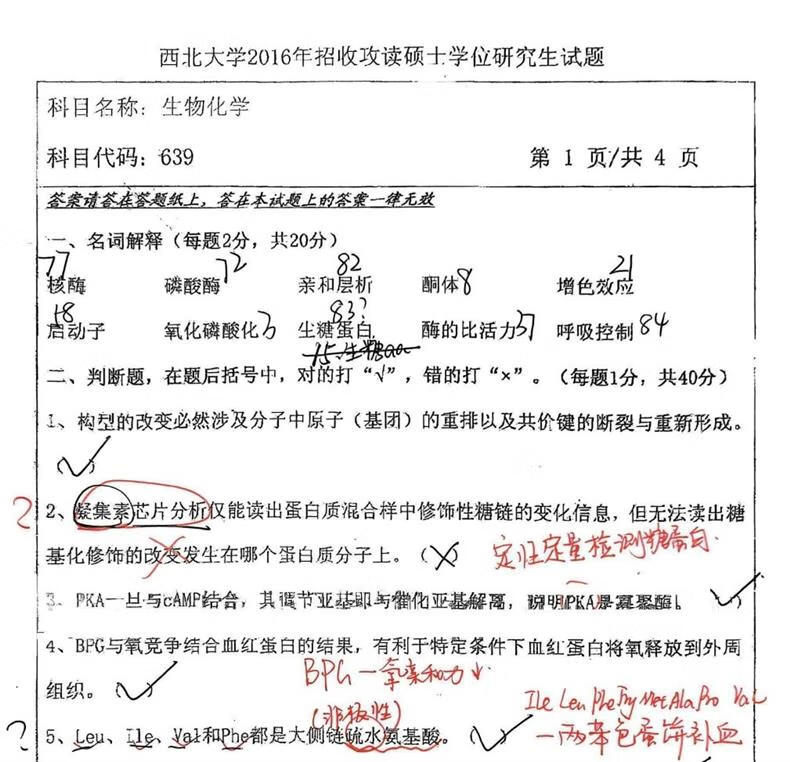 西北大学2016年招收攻读硕士学位研究生试题
科目名称：生物化学
科目代码：639 第 1 页/共 4 页
答案请答在答题纸上，答在本试题上的答案一律无效
一、名词解释（每题2分，共20分）
77 72 82 8 21
核酶 磷酸酶 亲和层析 酮体 增色效应
18 3 83? 37 84
启动子 氧化磷酸化 生糖蛋白 酶的比活力 呼吸控制
15.生糖aa
二、判断题，在题后括号中，对的打“√”，错的打“×”。（每题1分，共40分）
1、构型的改变必然涉及分子中原子（基团）的重排以及共价键的断裂与重新形成。
（√）
? 2、凝集素芯片分析仅能读出蛋白质混合样中修饰性糖链的变化信息，但无法读出糖
基化修饰的改变发生在哪个蛋白质分子上。（×） 定性定量检测糖蛋白.
3、PKA一旦与cAMP结合，其调节亚基即与催化亚基解离，说明PKA是寡聚酶。（√）
4、BPG与氧竞争结合血红蛋白的结果，有利于特定条件下血红蛋白将氧释放到外周
组织。（√） BPG—氧亲和力↓
(非极性) Ile Leu Phe Trp Met Ala Pro Val
? 5、Leu、Ile、Val和Phe都是大侧链疏水氨基酸。（√） 一两苯色蛋饼补血